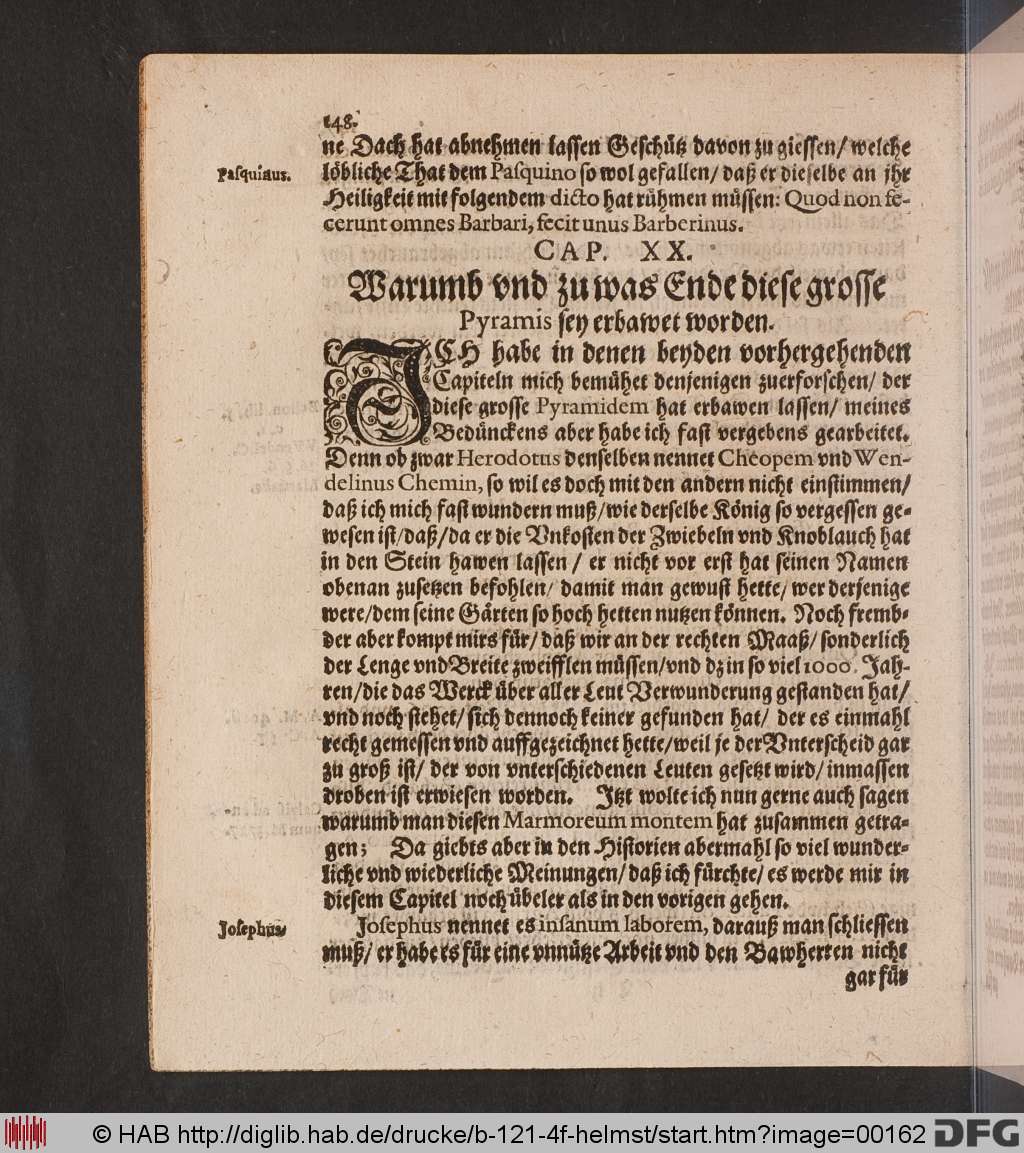 148.
ne Dach hat abnehmen lassen Geschütz davon zu giessen/ welche
Pasquinus.
löbliche That dem Pasquino so wol gefallen/ daß er dieselbe an jhr
Heiligkeit mit folgendem dicto hat rühmen müssen: Quod non fe-
cerunt omnes Barbari, fecit unus Barberinus.
CAP. XX.
Warumb vnd zu was Ende diese grosse
Pyramis sey erbawet worden.
ICH habe in denen beyden vorhergehenden
Capiteln mich bemühet denjenigen zuerforschen/ der
diese grosse Pyramidem hat erbawen lassen/ meines
Bedünckens aber habe ich fast vergebens gearbeitet.
Denn ob zwar Herodotus denselben nennet Cheopem vnd Wen-
delinus Chemin, so wil es doch mit den andern nicht einstimmen/
daß ich mich fast wundern muß/ wie derselbe König so vergessen ge-
wesen ist/ daß/ da er die Vnkosten der Zwiebeln vnd Knoblauch hat
in den Stein hawen lassen / er nicht vor erst hat seinen Namen
obenan zusetzen befohlen/ damit man gewust hette/ wer derjenige
were/ dem seine Gärten so hoch hetten nutzen können. Noch fremb-
der aber kompt mirs für/ daß wir an der rechten Maaß/ sonderlich
der Lenge vnd Breite zweifflen müssen/ vnd dz in so viel 1000. Jah-
ren/ die das Werck über aller Leut Verwunderung gestanden hat/
vnd noch stehet/ sich dennoch keiner gefunden hat/ der es einmahl
recht gemessen vnd auffgezeichnet hette/ weil je der Vnterscheid gar
zu groß ist/ der von vnterschiedenen Leuten gesetzt wird/ inmassen
droben ist erwiesen worden. Itzt wolte ich nun gerne auch sagen
warumb man diesen Marmoreum montem hat zusammen getra-
gen; Da giebts aber in den Historien abermahl so viel wunder-
liche vnd wiederliche Meinungen/ daß ich fürchte/ es werde mir in
diesem Capitel noch übeler als in den vorigen gehen.
Josephus
Josephus nennet es insanum laborem, darauß man schliessen
muß/ er habe es für eine vnnütze Arbeit vnd den Bawherren nicht
gar für
© HAB http://diglib.hab.de/drucke/b-121-4f-helmst/start.htm?image=00162 DFG